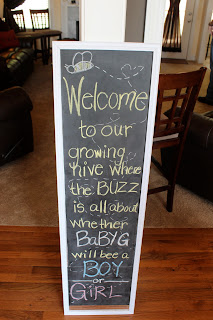 Welcome
to our
growing
hive where
the BUZZ
is all about
whether
BaBY G
will bee a
BOY
or
GiRL